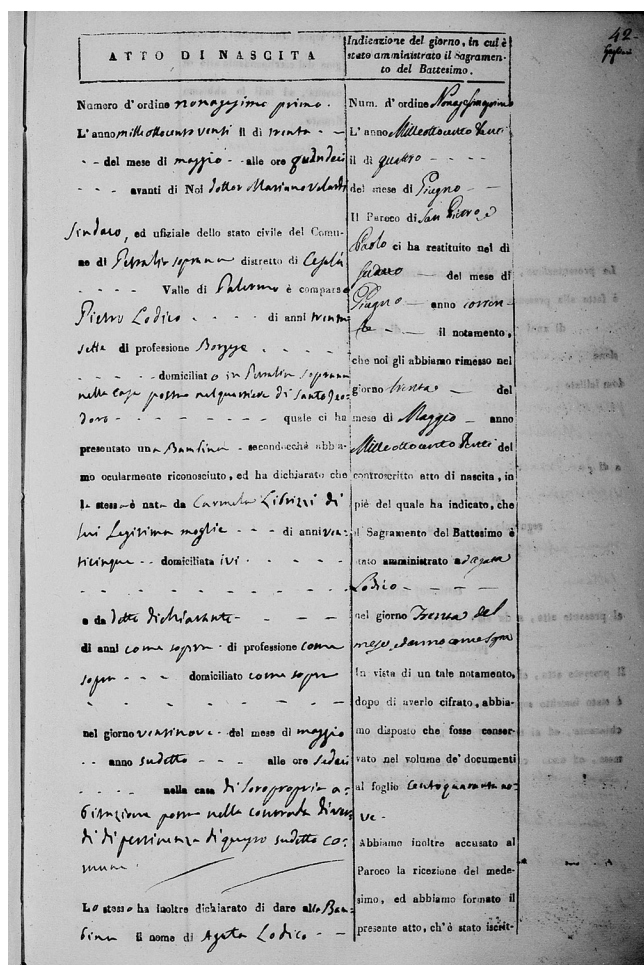 42
ATTO DI NASCITA
Numero d'ordine nonagesimo primo.
L'anno mille ottocento venti il dì trenta - -
- - del mese di maggio - alle ore quindeci
- - - avanti di Noi dottor Mariano
Sindaco, ed ufiziale dello stato civile del Comu-
ne di Petralia soprana distretto di Cefalù
- - - - Valle di Palermo è comparso
Pietro Lodico - - - - di anni trenta
sette di professione Borgese - - - -
- - - - domiciliato in Petralia soprana
nella casa posta nel quartiere di Santo Teo-
doro - - - - - - - quale ci ha
presentato una Bambina - secondocchè abbia-
mo ocularmente riconosciuto, ed ha dichiarato che
la stessa è nata da Carmela Librizzi di
lui Legitima moglie - - - di anni ven-
ticinque - - domiciliata ivi - - - -
- - - - - - - - - -
e da detto dichiarante - - - -
di anni come sopra - di professione come
sopra - - - domiciliato come sopra
- - - - - - - - -
nel giorno ventinove - del mese di maggio
- - anno sudetto - - - alle ore sedeci
- - - - nella casa di loro propria a-
bitazione posta nella contrada
di di pertinenza di questo sudetto co-
mune.
Lo stesso ha inoltre dichiarato di dare alla Bam-
bina il nome di Agata Lodico - -
Indicazione del giorno, in cui è
stato amministrato il Sagramen-
to del Battesimo.
Num. d'ordine Nonagesimoprimo
L'anno Milleottocento Venti
il dì quattro - - - -
del mese di Giugno - -
Il Paroco di San Pietro, e
Paolo ci ha restituito nel dì
sudetto - del mese di
Giugno - anno corren-
te - il notamento,
che noi gli abbiamo rimesso nel
giorno trenta - del
mese di Maggio - anno
Milleottocento Venti del
controscritto atto di nascita, in
piè del quale ha indicato, che
il Sagramento del Battesimo è
stato amministrato ad Agata
Lodico - - - -
nel giorno Trenta del
mese, ed anno come sopra
In vista di un tale notamento,
dopo di averlo cifrato, abbia-
mo disposto che fosse conser-
vato nel volume de' documenti
al foglio Centoquarantano-
ve -
Abbiamo inoltre accusato al
Paroco la ricezione del mede-
simo, ed abbiamo formato il
presente atto, ch'è stato iscrit-